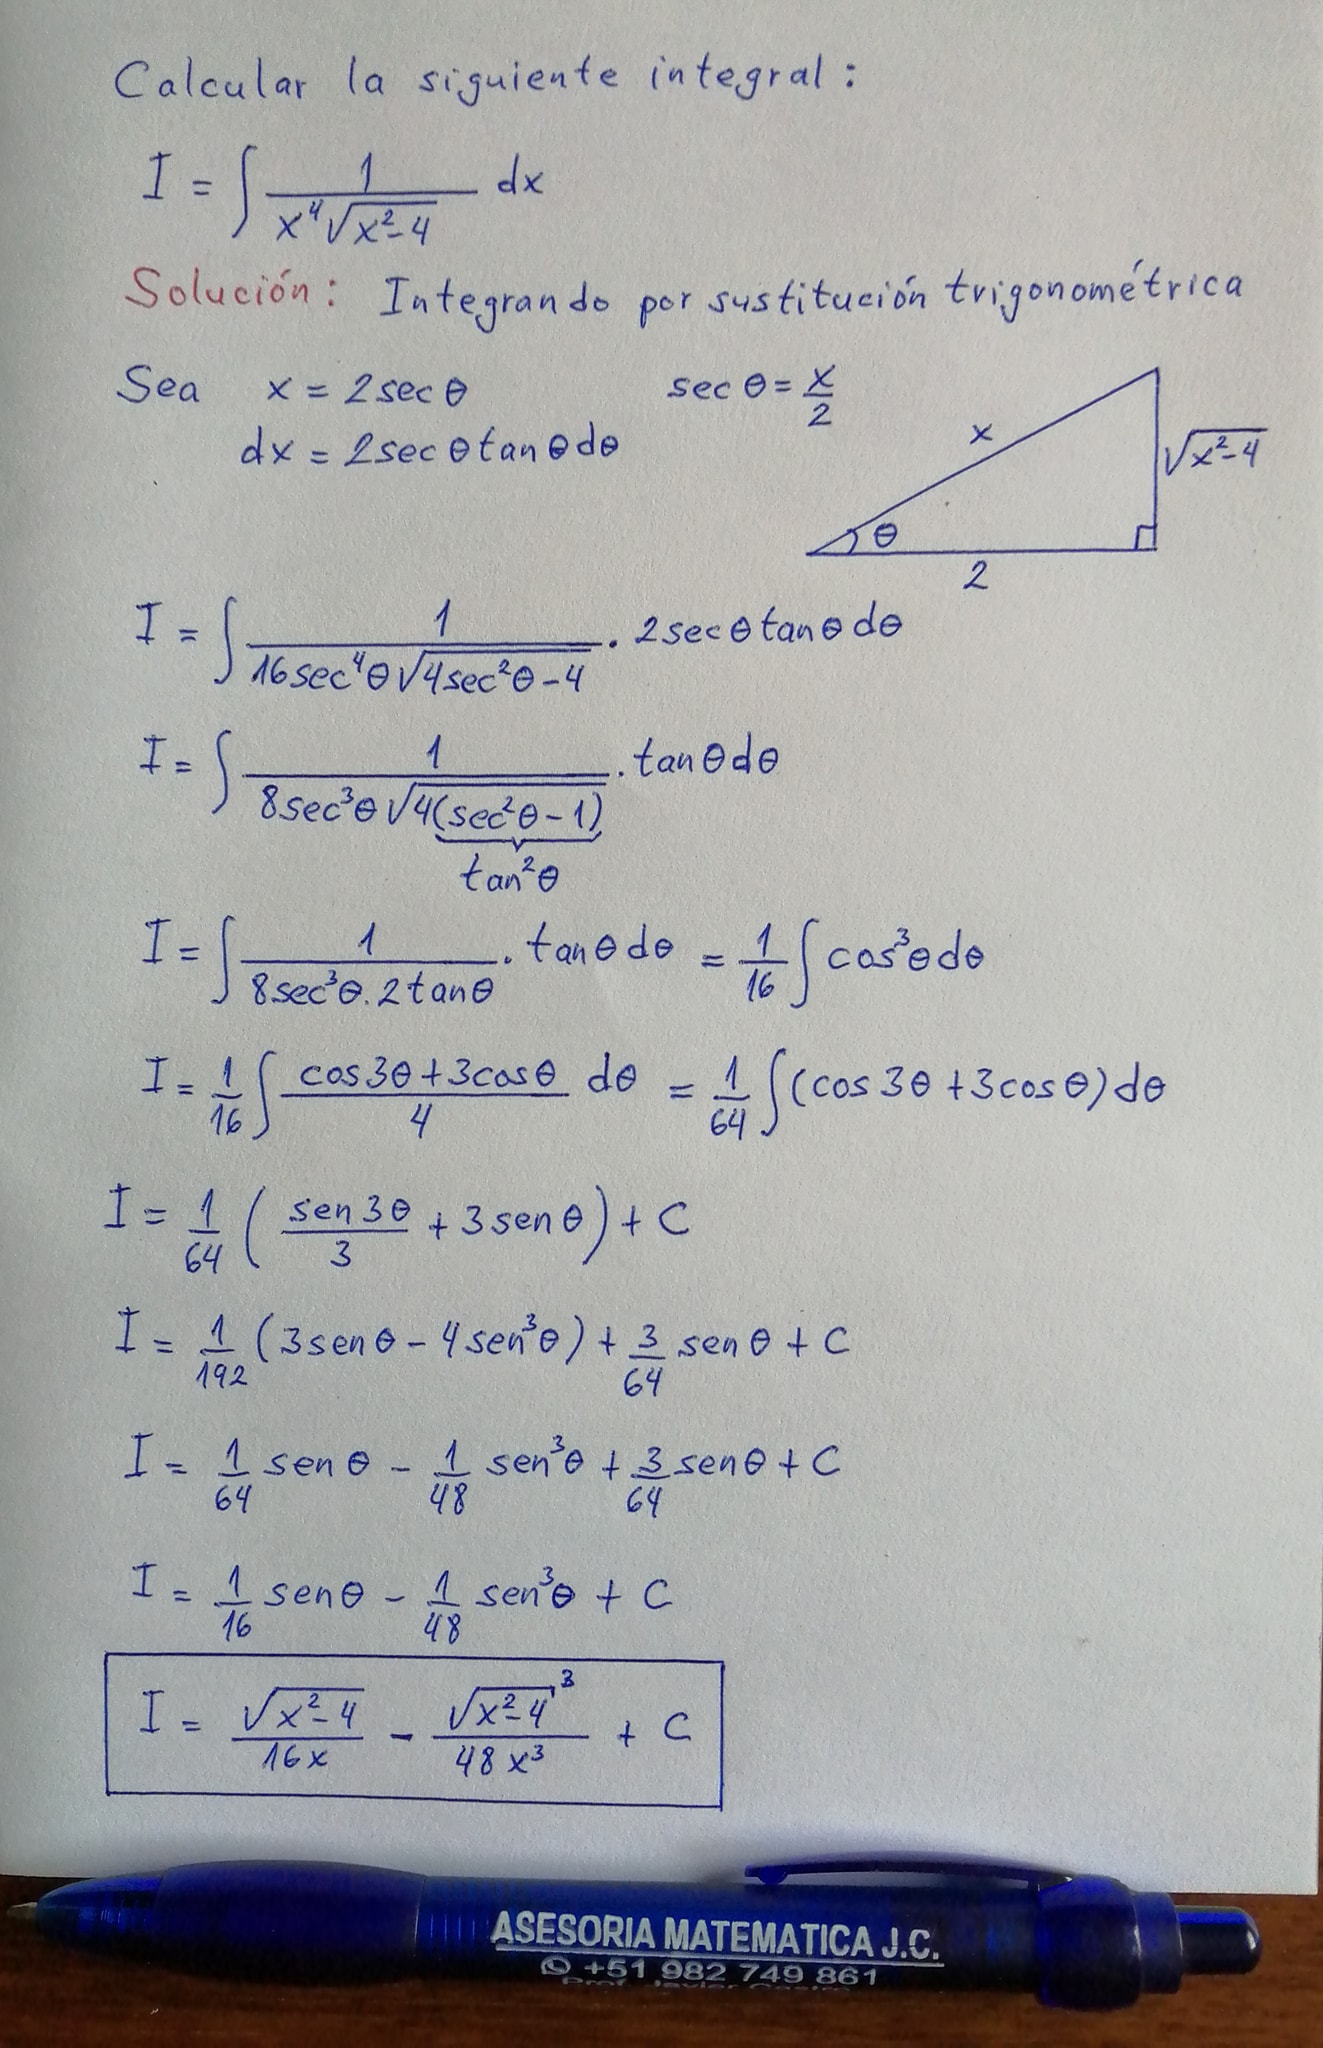 Calcular la siguiente integral:
I = ∫ 1/(x⁴√(x²-4)) dx
Solución: Integrando por sustitución trigonométrica
Sea x = 2secθ secθ = x/2
dx = 2secθtanθdθ
x
√(x²-4)
θ
2
I = ∫ 1/(16sec⁴θ√(4sec²θ-4)) . 2secθtanθdθ
I = ∫ 1/(8sec³θ√(4(sec²θ-1))) . tanθdθ
tan²θ
I = ∫ 1/(8sec³θ.2tanθ) . tanθdθ = 1/16 ∫ cos³θdθ
I = 1/16 ∫ (cos3θ+3cosθ)/4 dθ = 1/64 ∫(cos3θ+3cosθ)dθ
I = 1/64 (sen3θ/3 + 3senθ) + C
I = 1/192 (3senθ - 4sen³θ) + 3/64 senθ + C
I = 1/64 senθ - 1/48 sen³θ + 3/64 senθ + C
I = 1/16 senθ - 1/48 sen³θ + C
I = √(x²-4)/(16x) - √(x²-4)³/(48x³) + C
ASESORIA MATEMATICA J.C.
+51 982 749 861
Prof. Javier